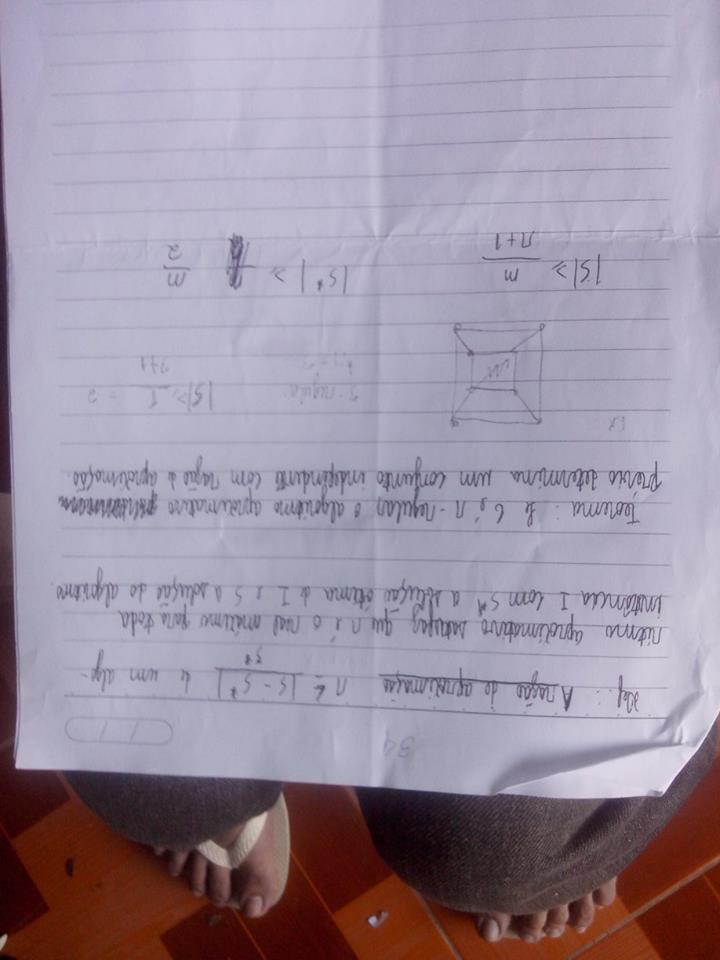 34
Def: A razão de aproximação r ≤ |S - S*| / S* de um algo-
ritmo aproximativo satisfaz que r é o real máximo para toda
instância I com S* a solução ótima de I e S a solução do algoritmo.
Teorema: Se G é r-regular o algoritmo aproximativo
prévio determina um conjunto independente com razão de aproximação.
Ex
3-regular |S| ≥ / 3+1 = 2
|S| ≥ n / r+1 |S*| ≥ n / 2